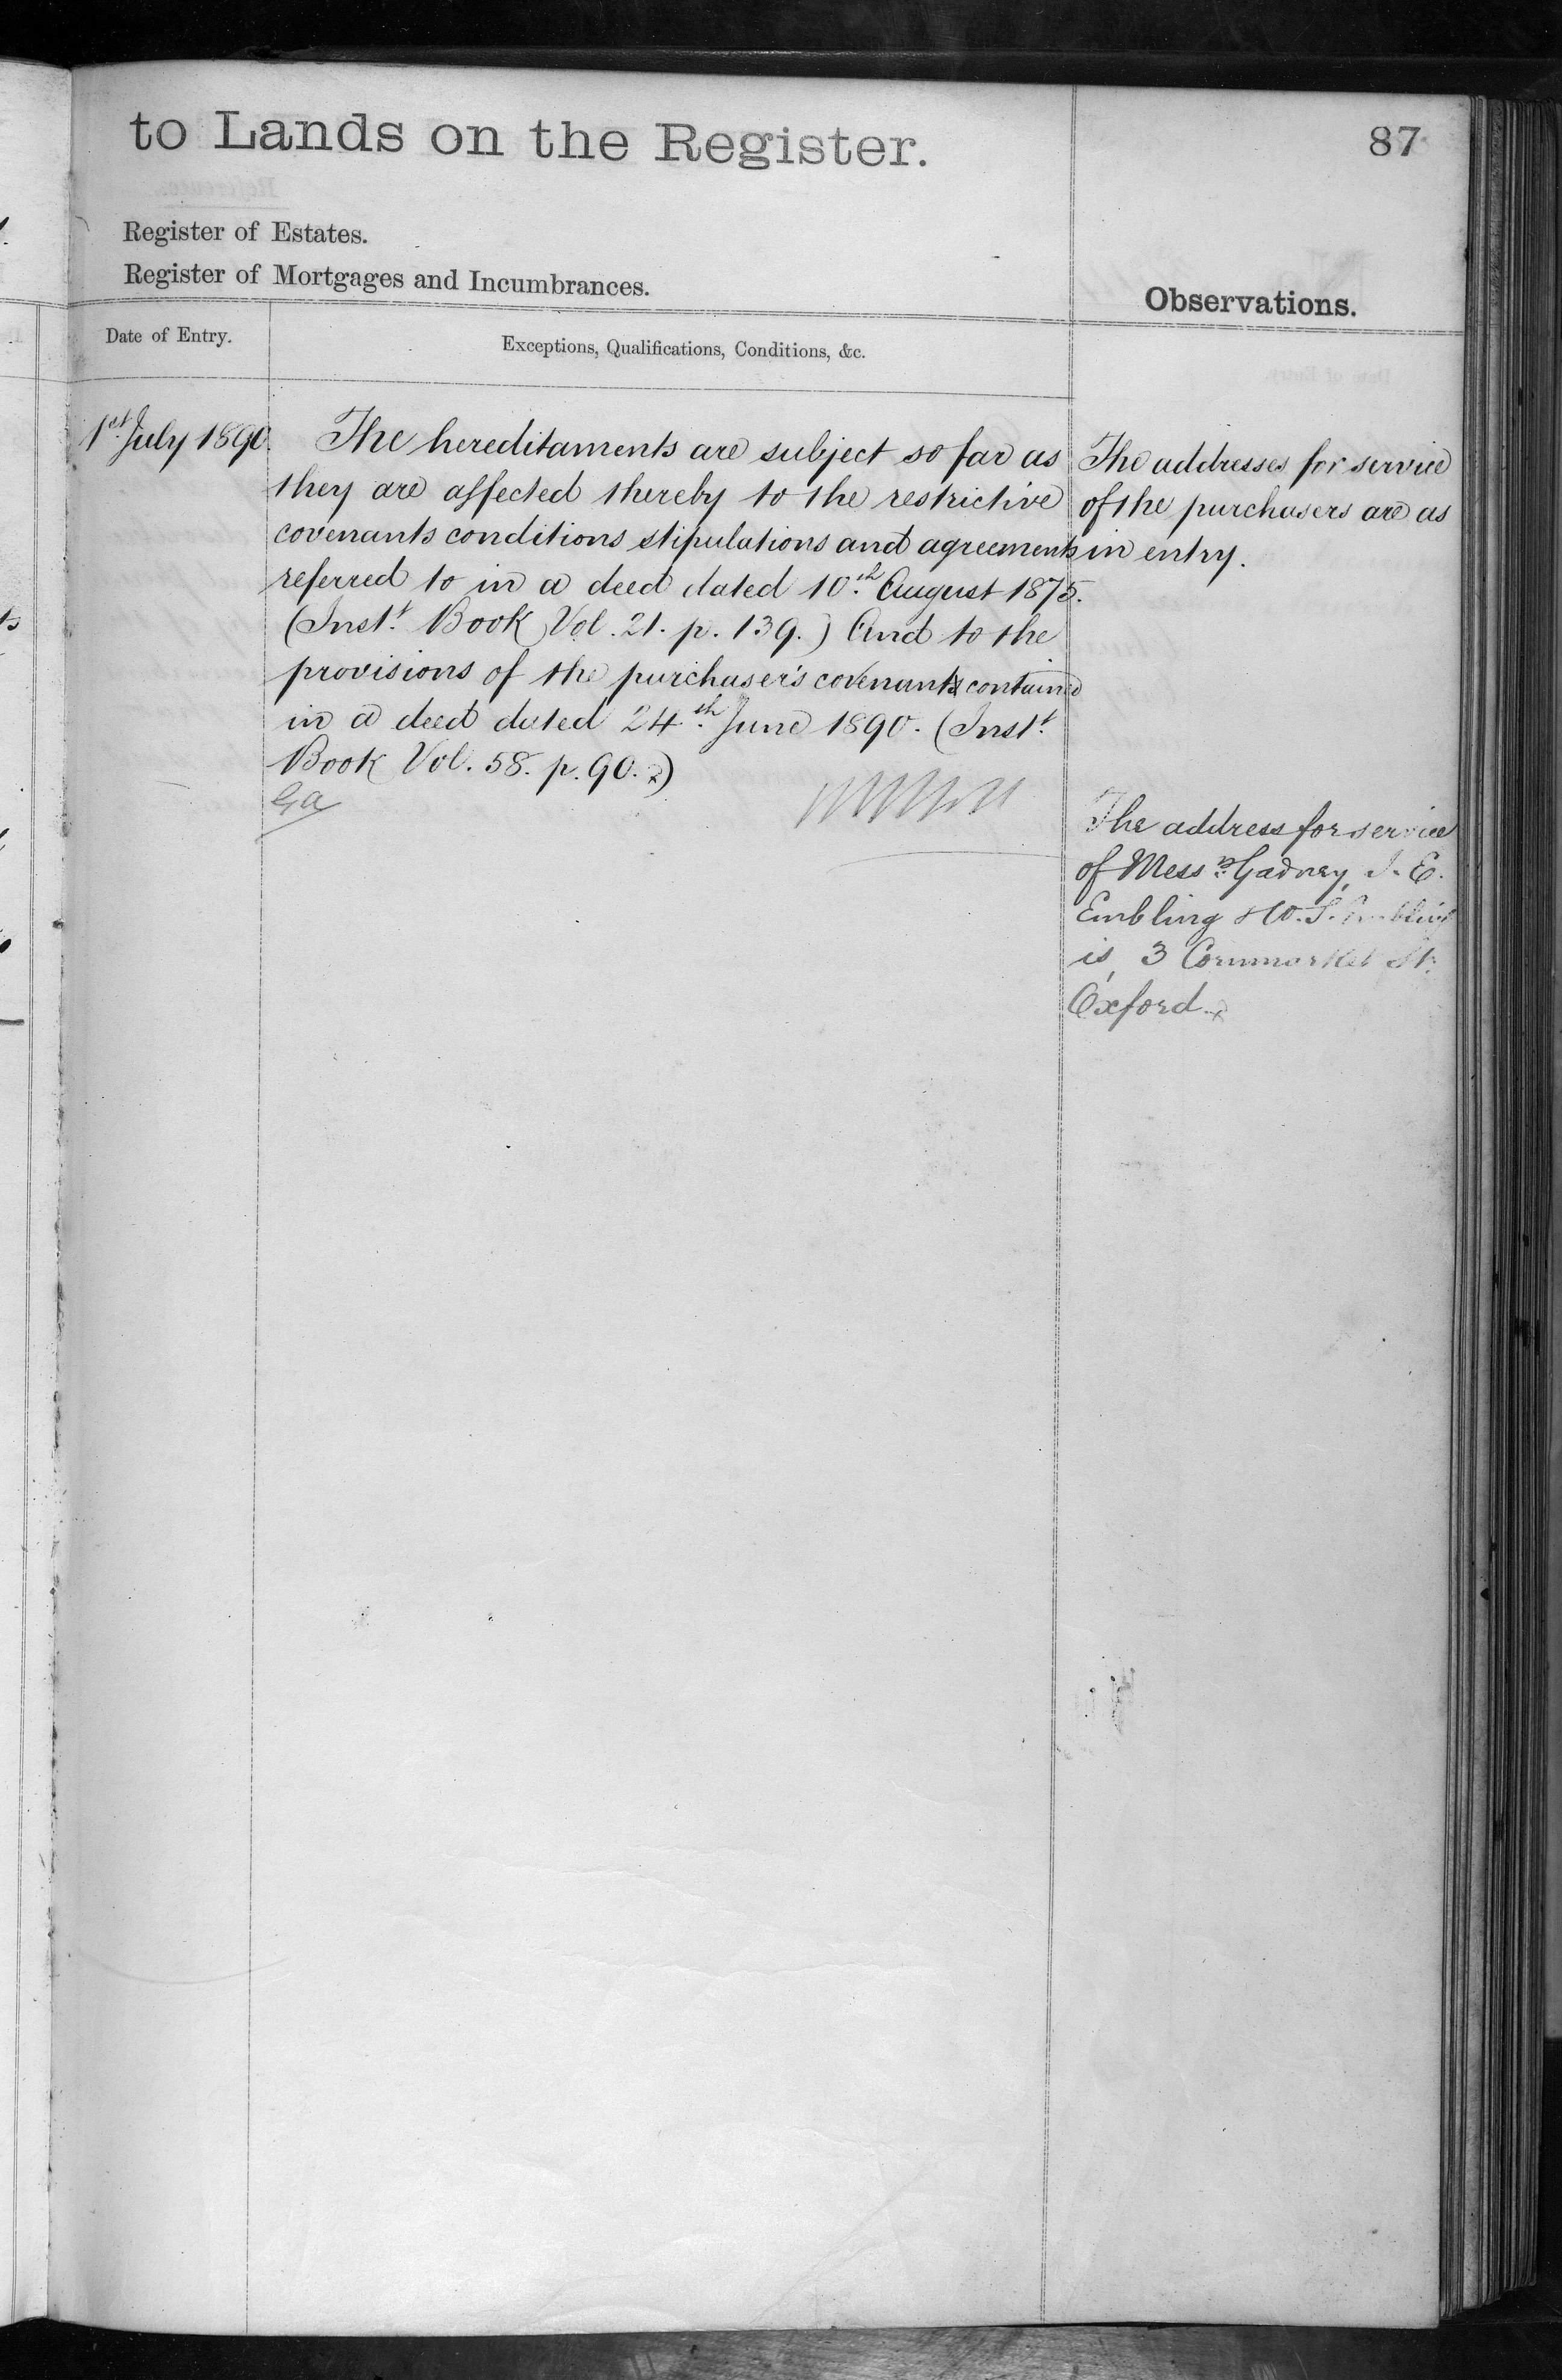 to Lands on the Register.
87
Register of Estates.
Register of Mortgages and Incumbrances.
Observations.
Date of Entry.
Exceptions, Qualifications, Conditions, &c.
1st July 1890.
The hereditaments are subject so far as
they are affected thereby to the restrictive
covenants conditions stipulations and agreements
referred to in a deed dated 10th August 1875.
(Instt Book Vol. 21. p. 139.) And to the
provisions of the purchaser's covenants contained
in a deed dated 24th June 1890. (Instt
Book Vol. 58. p. 90.)
Ga
The addresses for service
of the purchasers are as
in entry.
The address for service
of Messrs Gadney, J. E.
Embling & W. S. Embling
is, 3 Cornmarket St.
Oxford.